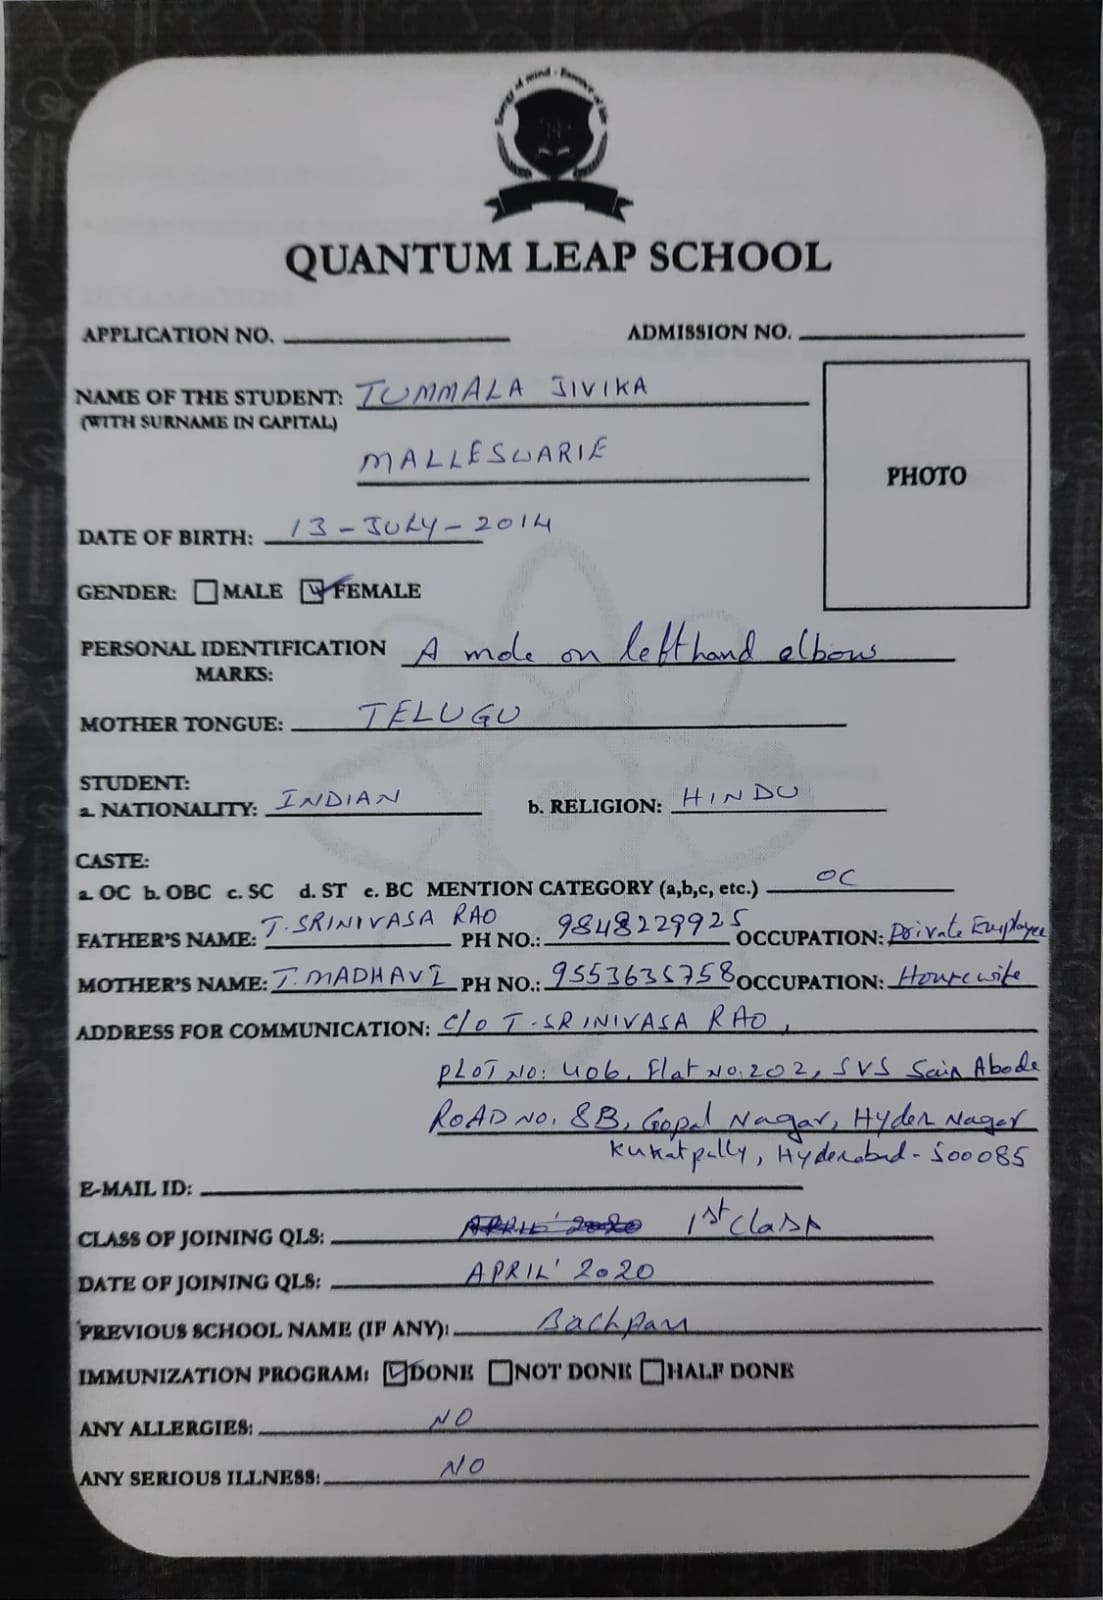 Energy of mind - Essence of life
QUANTUM LEAP SCHOOL
APPLICATION NO. ADMISSION NO.
NAME OF THE STUDENT: TUMMALA JIVIKA
(WITH SURNAME IN CAPITAL)
MALLESWARIE
PHOTO
DATE OF BIRTH: 13-JULY-2014
GENDER: MALE FEMALE
PERSONAL IDENTIFICATION A mole on lefthand elbows
MARKS:
MOTHER TONGUE: TELUGU
STUDENT:
a. NATIONALITY: INDIAN b. RELIGION: HINDU
CASTE:
a. OC b. OBC c. SC d. ST e. BC MENTION CATEGORY (a,b,c, etc.) OC
FATHER'S NAME: T. SRINIVASA RAO PH NO.: 9848229925 OCCUPATION: Private Employee
MOTHER'S NAME: T. MADHAVI PH NO.: 9553635758 OCCUPATION: Housewife
ADDRESS FOR COMMUNICATION: C/O T. SRINIVASA RAO,
PLOT NO: 406, Flat NO: 202, SVS Abode
ROAD NO. 8B, Gopal Nagar, Hyder Nagar
Kukatpally, Hyderabad - 500085
E-MAIL ID:
CLASS OF JOINING QLS: APRIL' 2020 1st Class
DATE OF JOINING QLS: APRIL' 2020
PREVIOUS SCHOOL NAME (IF ANY): Bachpan
IMMUNIZATION PROGRAM: DONE NOT DONE HALF DONE
ANY ALLERGIES: NO
ANY SERIOUS ILLNESS: NO